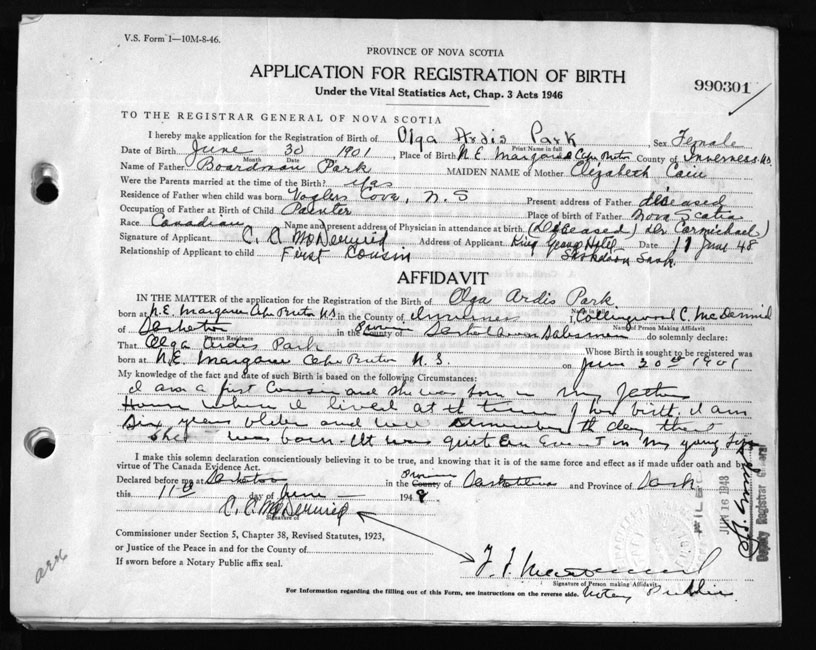 V.S. Form 1—10M-8-46.
PROVINCE OF NOVA SCOTIA
APPLICATION FOR REGISTRATION OF BIRTH
990301
Under the Vital Statistics Act, Chap. 3 Acts 1946
TO THE REGISTRAR GENERAL OF NOVA SCOTIA
I hereby make application for the Registration of Birth of Olga Ardis Park , Sex Female
Print Name in full
Date of Birth June 30 1901 , Place of Birth N.E. Margaree Cape Breton County of Inverness N.S.
Month Date
Name of Father Boardman Park MAIDEN NAME of Mother Elizabeth Cain
Were the Parents married at the time of the Birth? yes
Residence of Father when child was born Voglers Cove, N.S Present address of Father deceased
Occupation of Father at Birth of Child Painter Place of birth of Father Nova Scotia
Race Canadian Name and present address of Physician in attendance at birth (Deceased) Dr. Carmichael)
Signature of Applicant C. C. McDermid Address of Applicant King George Hotel Date 11 June 48
Saskatoon Sask.
Relationship of Applicant to child First Cousin
AFFIDAVIT
IN THE MATTER of the application for the Registration of the Birth of Olga Ardis Park
born at N.E. Margaree Cape Breton N.S. in the County of Inverness I, Collingwood C. McDermid
Name of Person Making Affidavit
of Saskatoon in the County of Saskatchewan Salesman do solemnly declare:
Present Residence
That Olga Ardis Park Whose Birth is sought to be registered was
born at N.E. Margaree Cape Breton N.S. on June 30th 1901
My knowledge of the fact and date of such Birth is Based on the following Circumstances:
I am a first Cousin and she was born in my father's
House where I lived at the time of her birth. I am
Six years older and well remember the day that
she was born. It was quiet an Event in my young life
I make this solemn declaration conscientiously believing it to be true, and knowing that it is of the same force and effect as if made under oath and by
virtue of The Canada Evidence Act.
Declared before me at Saskatoon in the County of Saskatchewan and Province of Sask.
this 11th day of June 1948.
C. C. McDermid
Signature of
Commissioner under Section 5, Chapter 38, Revised Statutes, 1923,
or Justice of the Peace in and for the County of
If sworn before a Notary Public affix seal.
Signature of Person making Affidavit
Notary Public
For Information regarding the filling out of this Form, see instructions on the reverse side.
FILED
JUN 16 1948
Deputy Registrar General